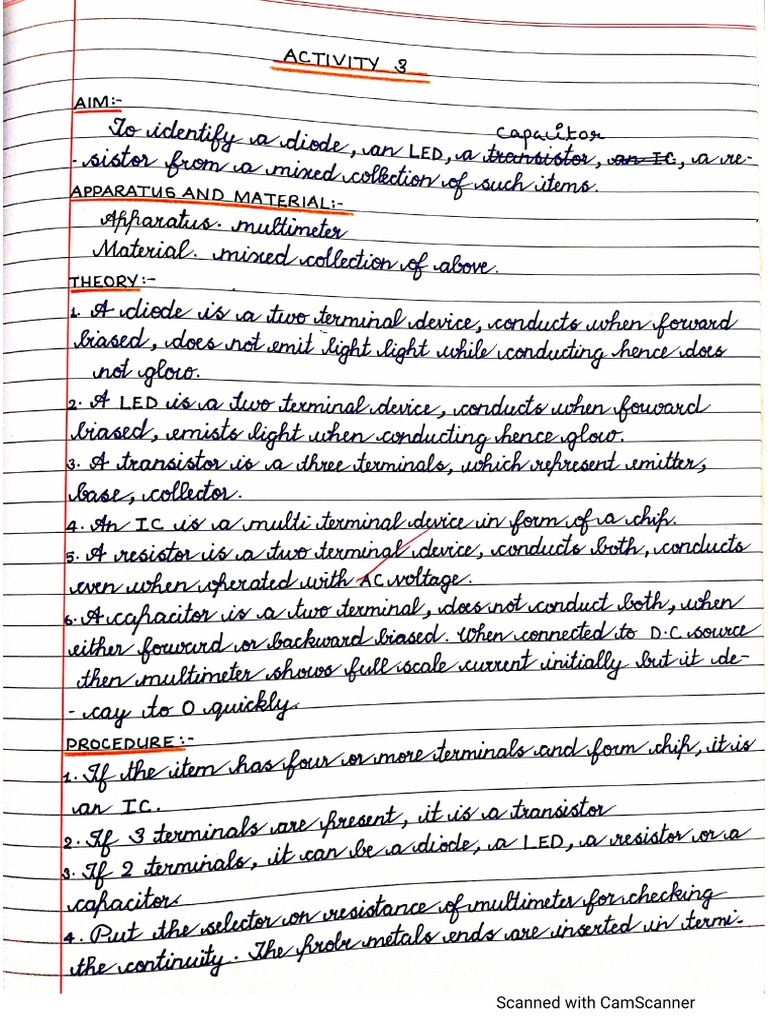 ACTIVITY 3
AIM:-
Capacitor
To identify a diode, an LED, a transistor, an IC, a re-
-sistor from a mixed collection of such items.
APPARATUS AND MATERIAL:-
Apparatus. multimeter
Material. mixed collection of above.
THEORY:-
1. A diode is a two terminal device, conducts when forward
biased, does not emit light light while conducting hence does
not glow.
2. A LED is a two terminal device, conducts when forward
biased, emists light when conducting hence glow.
3. A transistor is a three terminals, which represent emitter,
base, collector.
4. An IC is a multi terminal device in form of a chip.
5. A resistor is a two terminal device, conducts both, conducts
even when operated with AC voltage.
6. A capacitor is a two terminal, does not conduct both, when
either forward or backward biased. When connected to D.C source
then multimeter shows full scale current initially but it de-
- cay to 0 quickly.
PROCEDURE:-
1. If the item has four or more terminals and form chip, it is
an IC.
2. If 3 terminals are present, it is a transistor
3. If 2 terminals, it can be a diode, a LED, a resistor or a
capacitor.
4. Put the selector on resistance of multimeter for checking
the continuity. The probe metals ends are inserted in termi-
Scanned with CamScanner